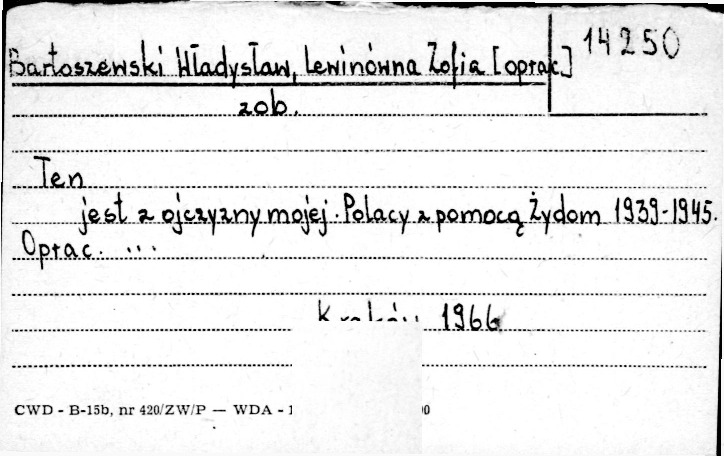 Bartoszewski Władysław, Lewinówna Zofia [oprac]
14250
zob.
Ten
jest z ojczyzny mojej. Polacy z pomocą Żydom 1939-1945.
Oprac. ...
Kraków 1966
CWD - B-15b, nr 420/ZW/P — WDA -